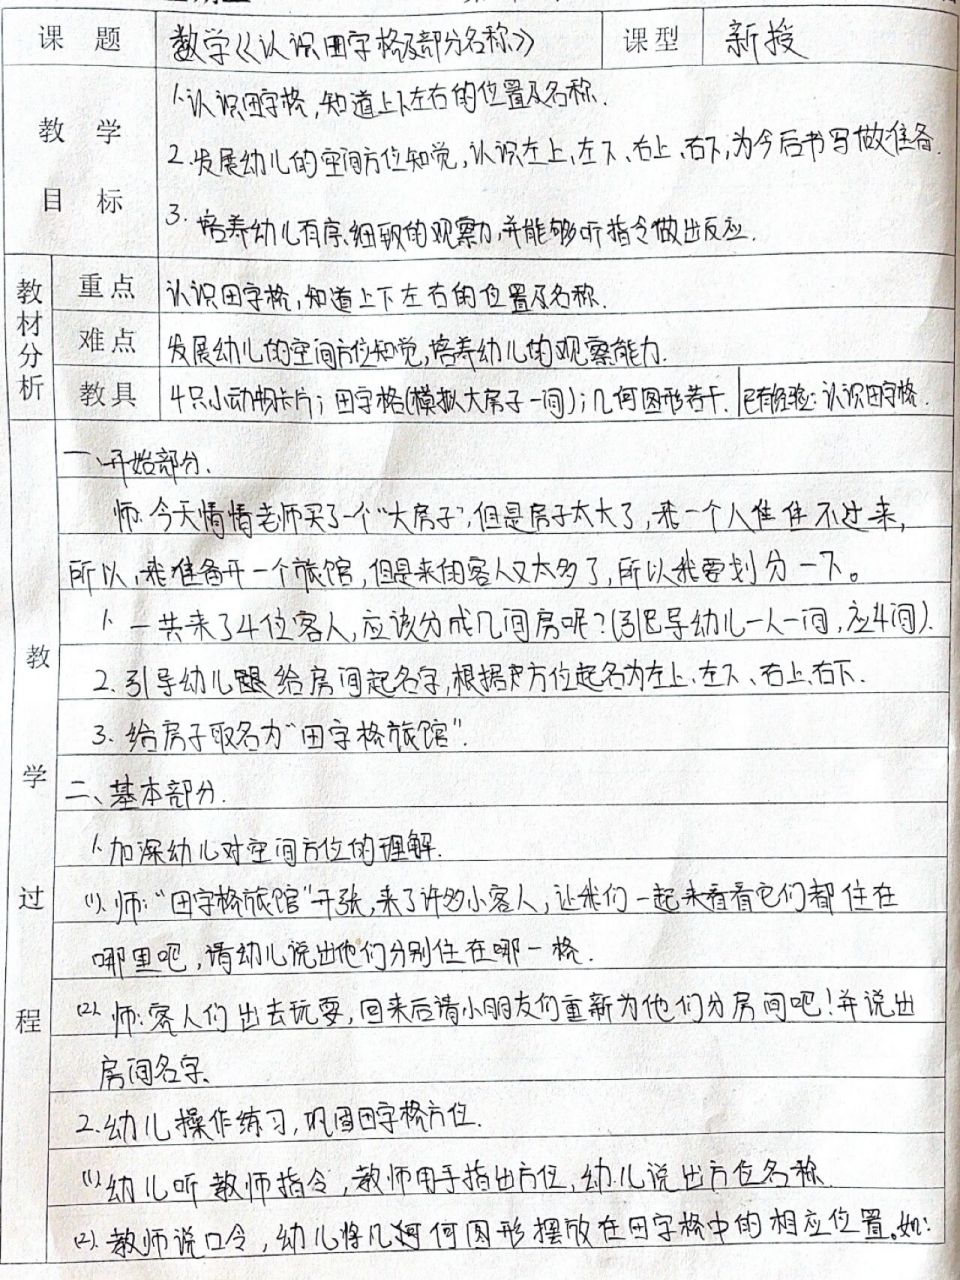 课题 数学《认识田字格及部分名称》 课型 新授
教学目标
1.认识田字格,知道上下左右的位置及名称.
2.发展幼儿的空间方位知觉,认识左上、左下、右上、右下,为今后书写做准备.
3.培养幼儿有序、细致的观察力,并能够听指令做出反应.
教材分析
重点 认识田字格,知道上下左右的位置及名称.
难点 发展幼儿的空间方位知觉,培养幼儿的观察能力.
教具 4只小动物卡片;田字格(模拟大房子一间);几何图形若干. 已有经验:认识田字格.
教学过程
一、开始部分.
师:今天情情老师买了一个“大房子”,但是房子太大了,我一个人住住不过来,
所以,我准备开一个旅馆,但是来的客人又太多了,所以我要划分一下。
1.一共来了4位客人,应该分成几间房呢?(引导幼儿一人一间,应4间).
2.引导幼儿给房间起名字,根据方位起名为左上、左下、右上、右下.
3.给房子取名为“田字格旅馆”.
二、基本部分.
1.加深幼儿对空间方位的理解.
(1).师:“田字格旅馆”开张,来了许多小客人,让我们一起来看看它们都住在
哪里吧,请幼儿说出他们分别住在哪一格.
(2).师:客人们出去玩耍,回来后请小朋友们重新为他们分房间吧!并说出
房间名字.
2.幼儿操作练习,巩固田字格方位.
(1).幼儿听教师指令,教师用手指出方位,幼儿说出方位名称.
(2).教师说口令,幼儿将几何图形摆放在田字格中的相应位置。如: